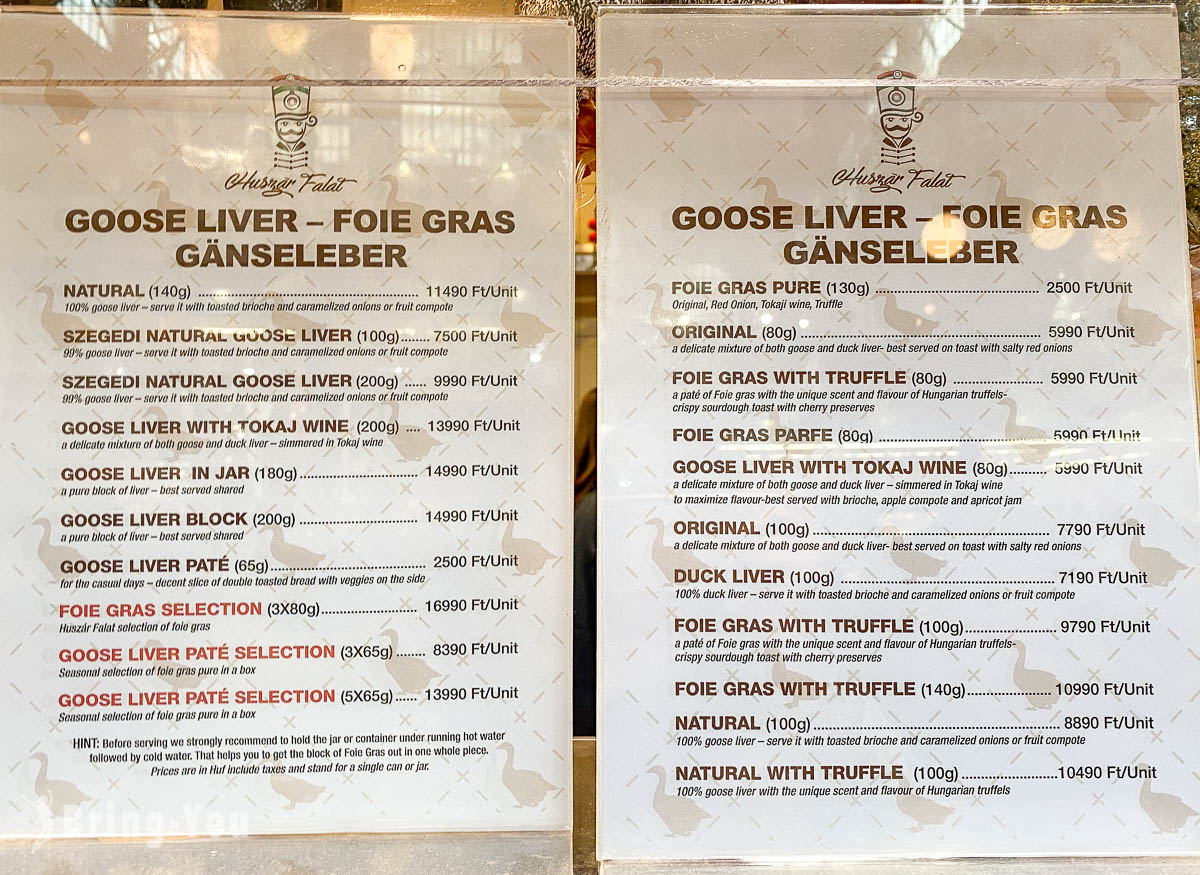 Huszár Falat
GOOSE LIVER – FOIE GRAS
GÄNSELEBER
NATURAL (140g) ........ 11490 Ft/Unit
100% goose liver – serve it with toasted brioche and caramelized onions or fruit compote
SZEGEDI NATURAL GOOSE LIVER (100g)........ 7500 Ft/Unit
99% goose liver – serve it with toasted brioche and caramelized onions or fruit compote
SZEGEDI NATURAL GOOSE LIVER (200g) ...... 9990 Ft/Unit
99% goose liver – serve it with toasted brioche and caramelized onions or fruit compote
GOOSE LIVER WITH TOKAJ WINE (200g) .... 13990 Ft/Unit
a delicate mixture of both goose and duck liver – simmered in Tokaj wine
GOOSE LIVER IN JAR (180g)........ 14990 Ft/Unit
a pure block of liver – best served shared
GOOSE LIVER BLOCK (200g) ........ 14990 Ft/Unit
a pure block of liver – best served shared
GOOSE LIVER PATÉ (65g)........ 2500 Ft/Unit
for the casual days – decent slice of double toasted bread with veggies on the side
FOIE GRAS SELECTION (3X80g)........ 16990 Ft/Unit
Huszár Falat selection of foie gras
GOOSE LIVER PATÉ SELECTION (3X65g) ........ 8390 Ft/Unit
Seasonal selection of foie gras pure in a box
GOOSE LIVER PATÉ SELECTION (5X65g)...... 13990 Ft/Unit
Seasonal selection of foie gras pure in a box
HINT: Before serving we strongly recommend to hold the jar or container under running hot water
followed by cold water. That helps you to get the block of Foie Gras out in one whole piece.
Prices are in Huf include taxes and stand for a single can or jar.
Bring You
Huszár Falat
GOOSE LIVER – FOIE GRAS
GÄNSELEBER
FOIE GRAS PURE (130g) ........ 2500 Ft/Unit
Original, Red Onion, Tokaji wine, Truffle
ORIGINAL (80g) ........ 5990 Ft/Unit
a delicate mixture of both goose and duck liver- best served on toast with salty red onions
FOIE GRAS WITH TRUFFLE (80g) ........ 5990 Ft/Unit
a paté of Foie gras with the unique scent and flavour of Hungarian truffels-
crispy sourdough toast with cherry preserves
FOIE GRAS PARFE (80g) ........ 5990 Ft/Unit
GOOSE LIVER WITH TOKAJ WINE (80g)........ 5990 Ft/Unit
a delicate mixture of both goose and duck liver – simmered in Tokaj wine
to maximize flavour-best served with brioche, apple compote and apricot jam
ORIGINAL (100g)........ 7790 Ft/Unit
a delicate mixture of both goose and duck liver- best served on toast with salty red onions
DUCK LIVER (100g) ........ 7190 Ft/Unit
100% duck liver – serve it with toasted brioche and caramelized onions or fruit compote
FOIE GRAS WITH TRUFFLE (100g)........ 9790 Ft/Unit
a paté of Foie gras with the unique scent and flavour of Hungarian truffels-
crispy sourdough toast with cherry preserves
FOIE GRAS WITH TRUFFLE (140g)........ 10990 Ft/Unit
NATURAL (100g) ........ 8890 Ft/Unit
100% goose liver – serve it with toasted brioche and caramelized onions or fruit compote
NATURAL WITH TRUFFLE (100g) ........10490 Ft/Unit
100% goose liver with the unique scent and flavour of Hungarian truffels